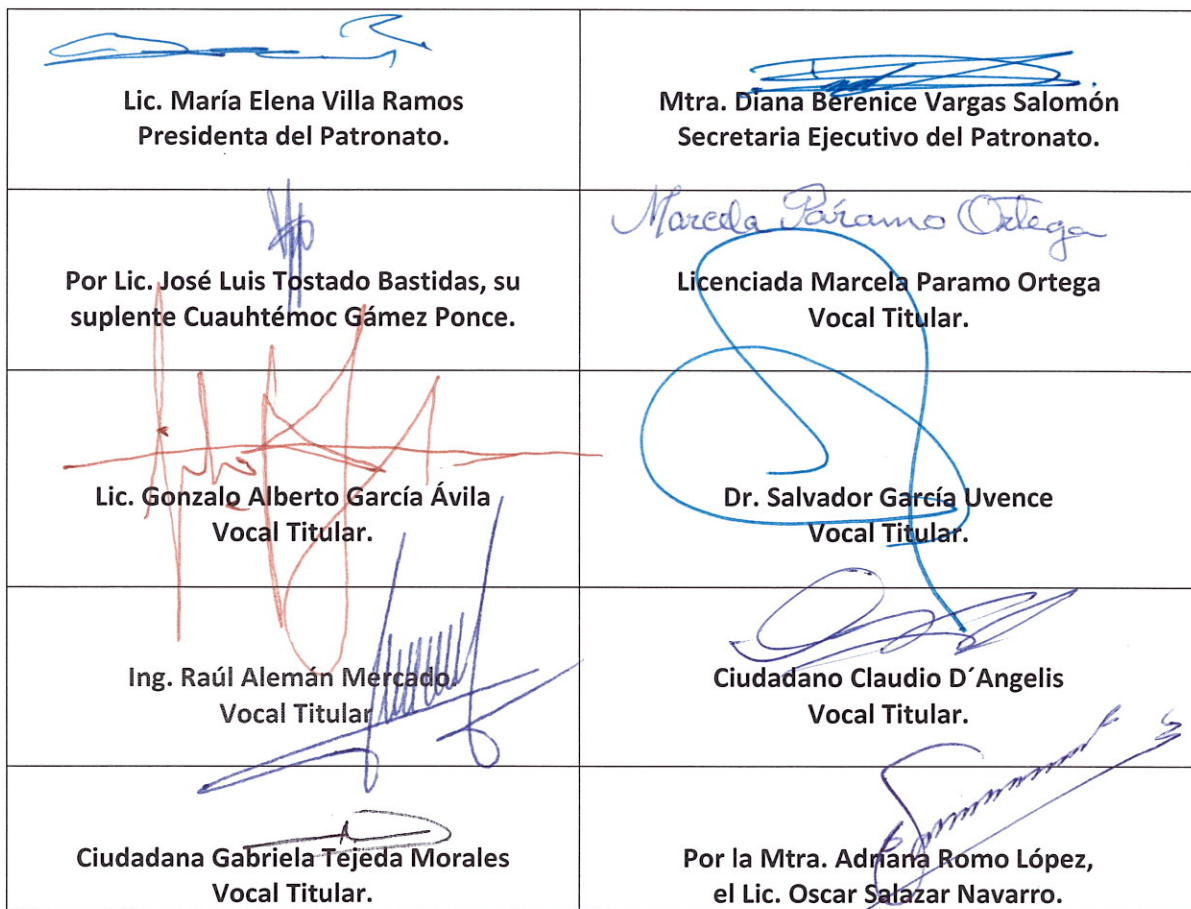 Lic. María Elena Villa Ramos
Presidenta del Patronato.
Mtra. Diana Berenice Vargas Salomón
Secretaria Ejecutivo del Patronato.
Por Lic. José Luis Tostado Bastidas, su
suplente Cuauhtémoc Gámez Ponce.
Marcela Páramo Ortega
Licenciada Marcela Paramo Ortega
Vocal Titular.
Lic. Gonzalo Alberto García Ávila
Vocal Titular.
Dr. Salvador García Uvence
Vocal Titular.
Ing. Raúl Alemán Mercado.
Vocal Titular
Ciudadano Claudio D´Angelis
Vocal Titular.
Ciudadana Gabriela Tejeda Morales
Vocal Titular.
Por la Mtra. Adriana Romo López,
el Lic. Oscar Salazar Navarro.